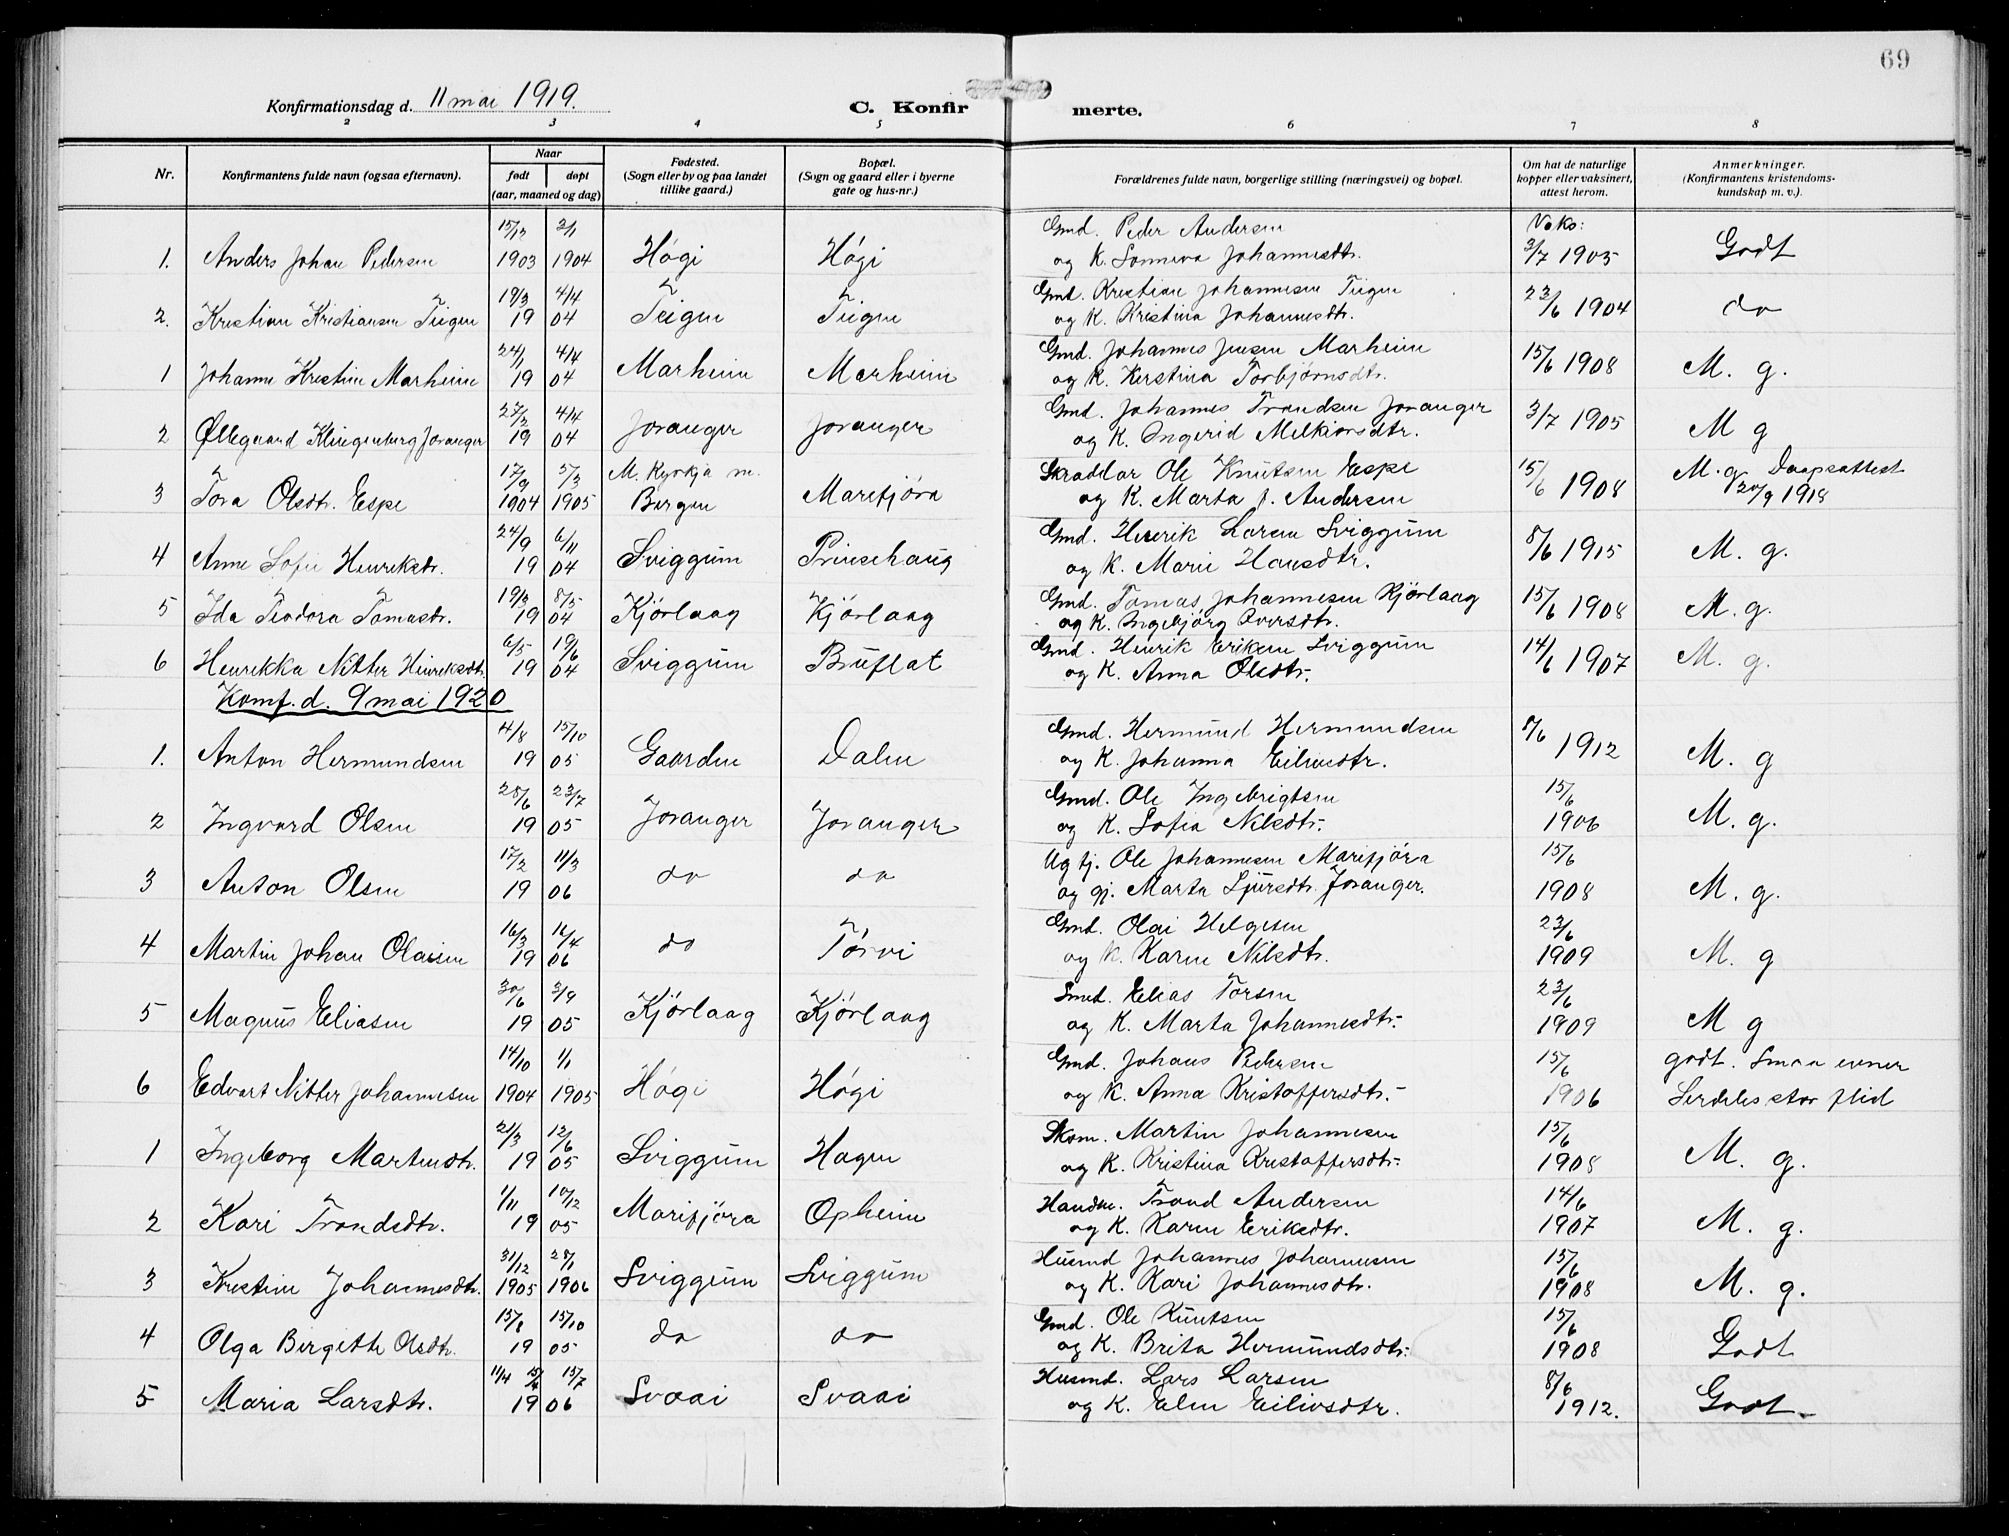 69
Konfirmationsdag d. 11 mai 1919.
C. Konfir merte.
2 3 4 5 6 7 8
Nr. Konfirmantens fulde navn (ogsaa efternavn). Naar født døpt (aar, maaned og dag) Fødested. (Sogn eller by og paa landet tillike gaard.) Bopæl. (Sogn og gaard eller i byerne gate og hus-nr.) Forældrenes fulde navn, borgerlige stilling (næringsvei) og bopæl. Om hat de naturlige kopper eller vaksinert, attest herom. Anmerkninger. (Konfirmantens kristendomskundskap m. v.).
15/12 2/1 Gmd. Peder Andersen Vaks:
1. Anders Johan Pedersen 1903 1904 Høgi Høgi og K. Sonneva Johannesdtr. 3/7 1905 Godt
19/3 4/4 Gmd. Kristian Johannesen Teigen
2. Kristian Kristiansen Teigen 19 04 Teigen Teigen og K. Kristina Johannesdtr. 23/6 1904 do
24/1 4/4 Gmd. Johannes Jensen Marheim
1 Johanne Kristine Marheim 19 04 Marheim Marheim og K. Kerstina Torbjørnsdtr. 15/6 1908 M. g.
27/2 4/4 Gmd. Johannes Trondsen Joranger
2 Øllegaard Klingenberg Joranger 19 04 Joranger Joranger og K. Ingerid Melkiorsdtr. 3/7 1905 M g
17/9 5/3 M. Kyrkja m. Skraddar Ole Knutsen Espe M. g Daapsattest
3 Tora Olsdtr. Espe 1904 1905 Bergen Marifjøra og K. Marta J. Andersen 15/6 1908 20/9 1918
24/9 6/11 Gmd. Henrik Larsen Sviggum
4 Anne Sofie Henriksdtr. 19 04 Sviggum Prinsehaug og K. Marie Hansdtr. 8/6 1915 M. g.
19/3 8/5 Gmd. Tomas Johannesen Kjörlaag
5 Ida Teodora Tomasdtr. 19 04 Kjörlaag Kjörlaag og K. Ingebjörg Iversdtr. 15/6 1908 M. g.
6/5 19/6 Gmd. Henrik Eriksen Sviggum
6 Henrikka Nitter Henriksdtr. 19 04 Sviggum Bruflat og K. Anna Olsdtr. 14/6 1907 M. g.
Konf. d. 9 mai 1920
4/8 15/10 Gmd. Hermund Hermundsen
1. Anton Hermundsen 19 05 Gaarden Dalen og K. Johanna Eilivsdtr. 8/6 1912 M. g
25/6 23/7 Gmd. Ole Ingebrigtsen 15/6
2 Ingvard Olsen 19 05 Joranger Joranger og K. Sofia Nilsdtr. 1906 M. g.
17/2 11/3 Ug tj. Ole Johannesen Marifjøra 15/6
3 Anton Olsen 19 06 do do og gj. Marta Sjursdtr. Joranger. 1908 M. g.
16/3 16/4 Gmd. Olai Helgesen 23/6
4 Martin Johan Olaisen 19 06 do Tørvi og K. Karen Nilsdtr. 1909 M. g
30/6 3/9 Smed. Elias Torsen 23/6
5 Magnus Eliasen 19 05 Kjörlaag Kjörlaag og K. Marta Johannesdtr. 1909 M g
14/10 1/1 Gmd. Johans Pedersen 15/6 godt. Smaa evner
6 Edvart Nitter Johannesen 1904 1905 Høgi Høgi og K. Anna Kristoffersdtr. 1906 Serdeles stor flid
21/3 12/6 Skom. Martin Johannesen 15/6
1 Ingeborg Martinsdtr. 19 05 Sviggum Hagen og K. Kristina Kristoffersdtr. 1908 M. g.
1/11 10/12 Handm. Trond Andersen 14/6
2 Kari Trondsdtr. 19 05 Marifjøra Opheim og K. Karen Eriksdtr. 1907 M. g.
31/12 28/1 Husmd Johannes Johannesen 15/6
3 Kristine Johannesdtr. 1905 1906 Sviggum Sviggum og K. Kari Johannesdtr. 1908 M. g.
15/8 15/10 Gmd. Ole Knutsen 15/6
4 Olga Birgitte Olsdtr. 19 05 do do og K. Brita Hermundsdtr. 1908 Godt
11/4 15/7 Husmd. Lars Larsen 8/6
5 Maria Larsdtr. 19 06 Svaai Svaai og K. Elen Eilivsdtr. 1912. Godt.